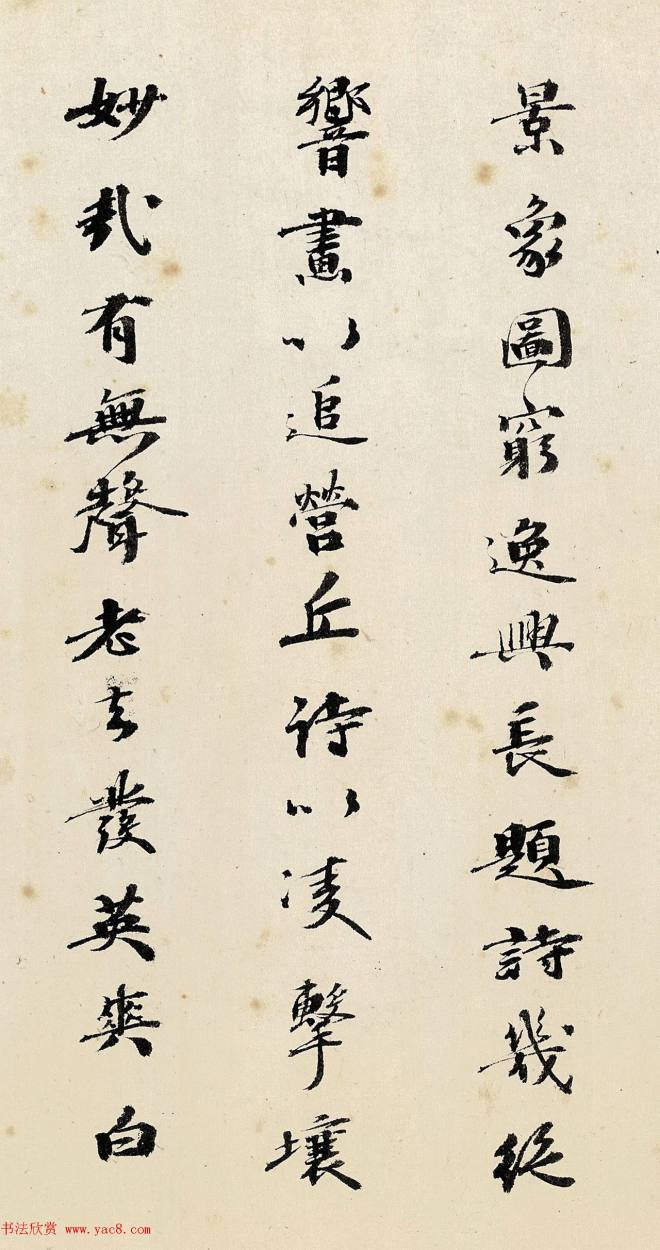 景象圖窮逸興長題詩幾絕
響畫以追營丘詩以凌擊壤
妙哉有無聲老去發英爽白
书法欣赏 www.yac8.com